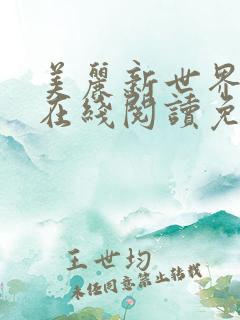 美麗新世界
在綫閱讀免
王世均
未经同意禁止转载